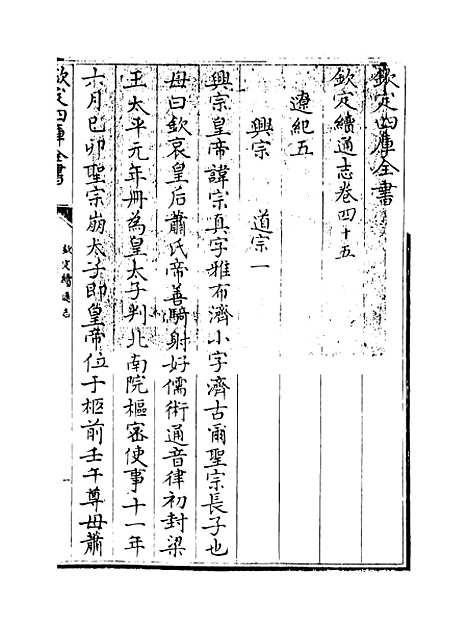 欽定四庫全書
欽定續通志卷四十五
遼紀五
興宗　道宗一
興宗皇帝諱宗真字雅布濟小字濟古爾聖宗長子也
母曰欽哀皇后蕭氏帝善騎射好儒術通音律初封梁
王太平元年冊為皇太子判北南院樞密使事十一年
六月己卯聖宗崩太子即皇帝位于柩前壬午尊母蕭
欽定四庫全書
欽定續通志
一